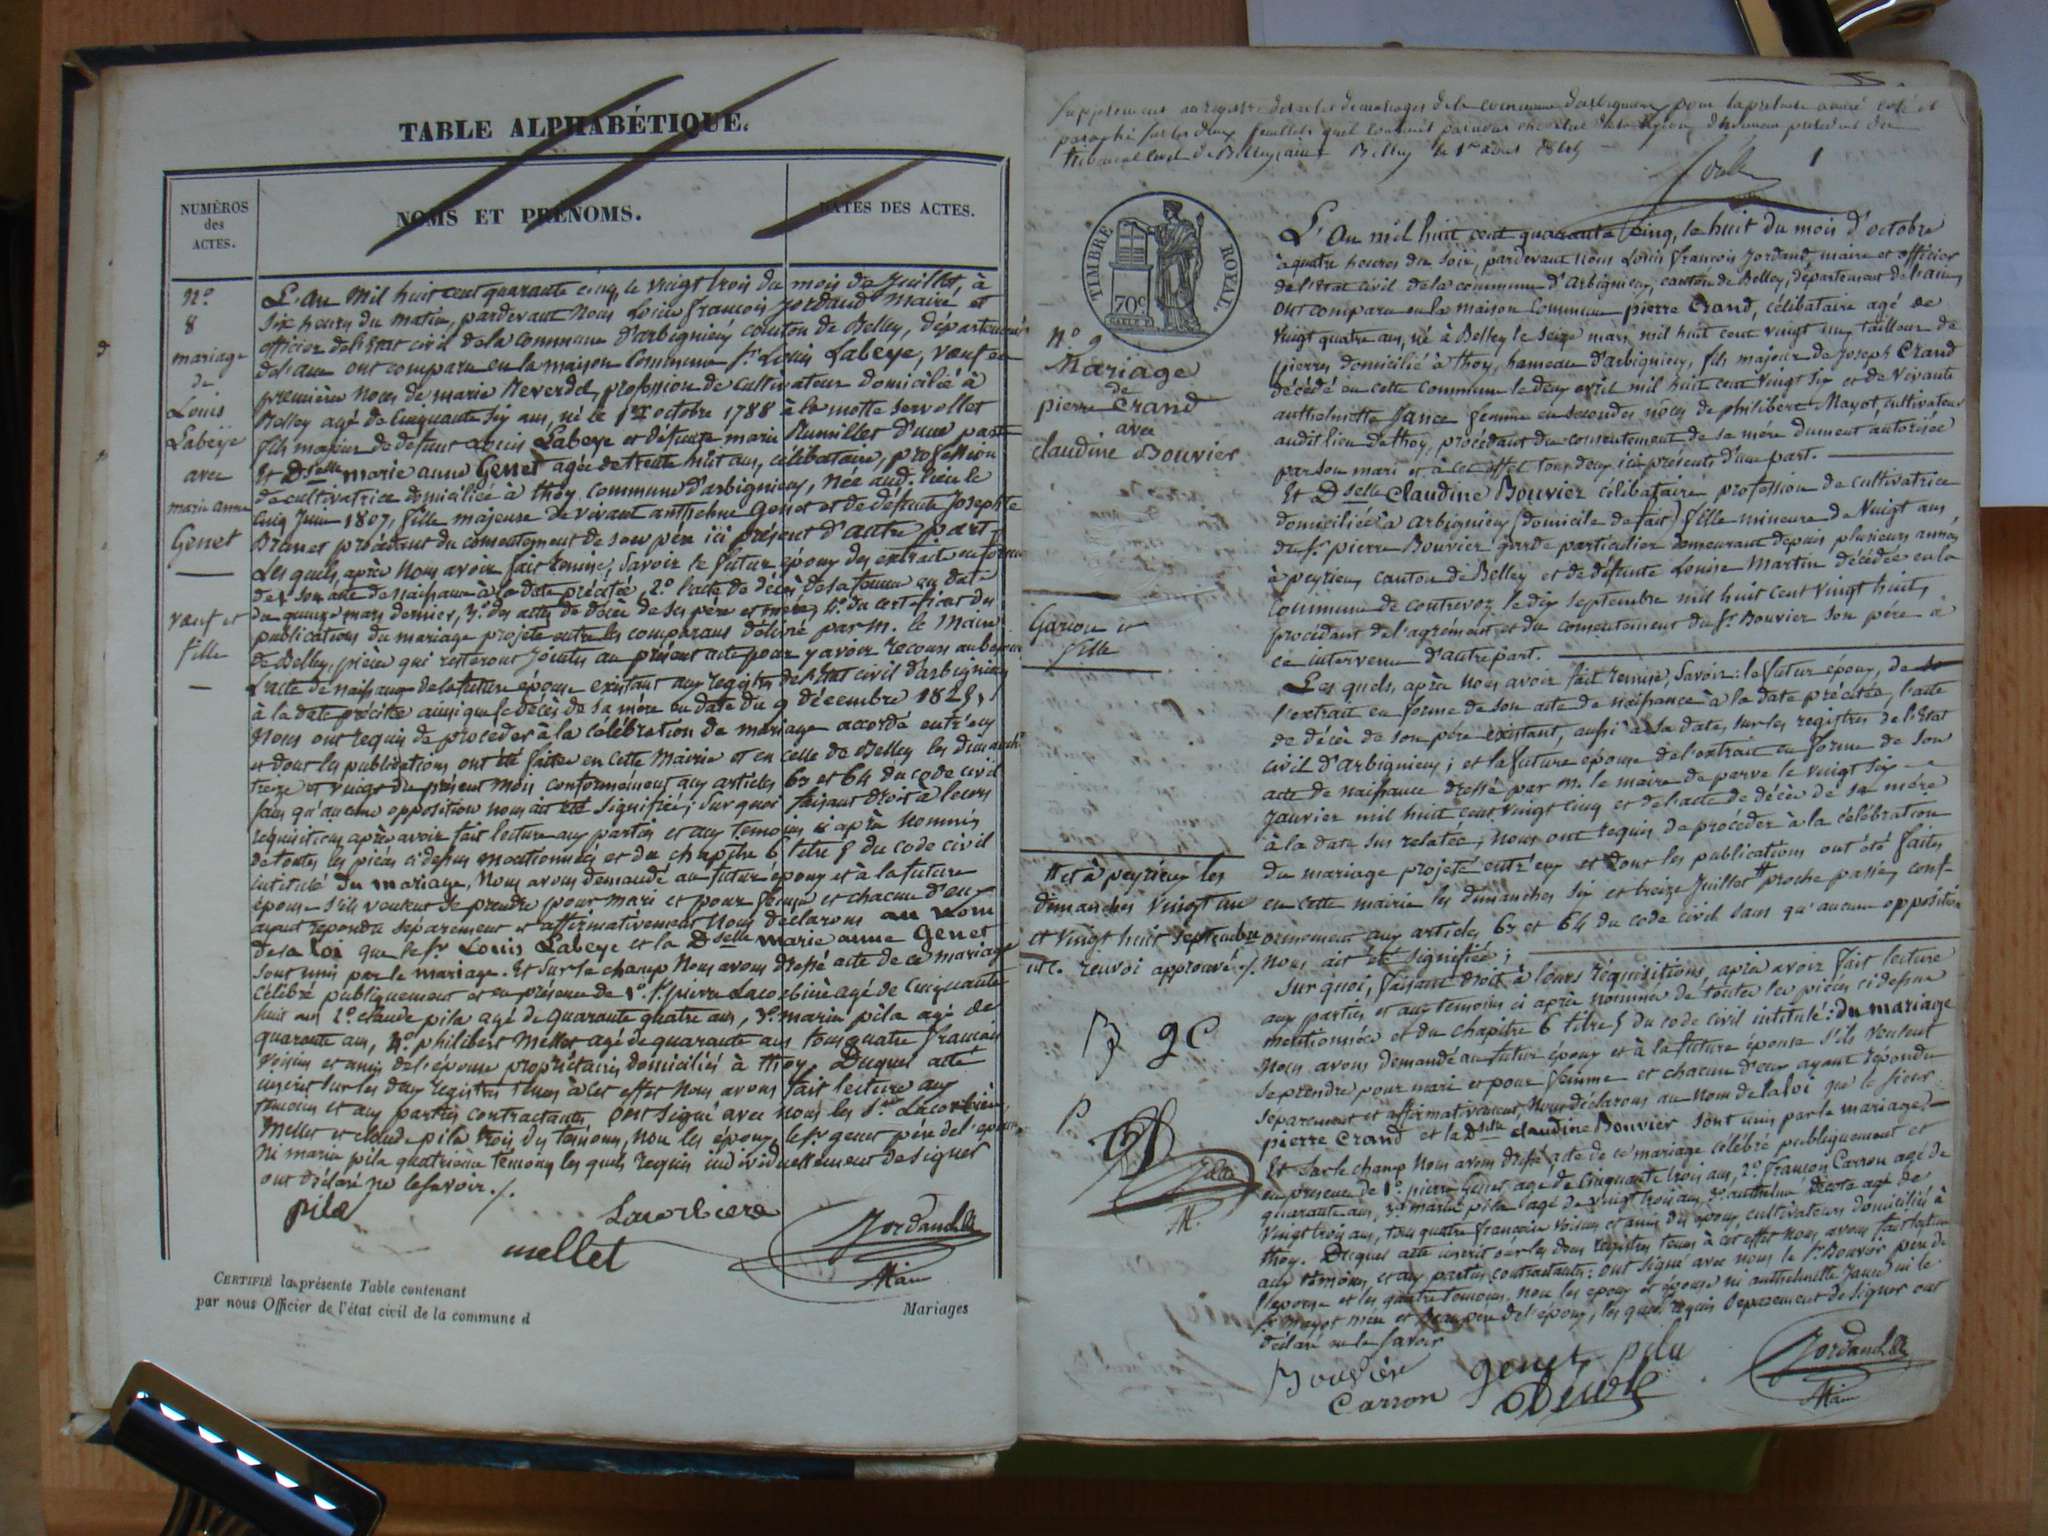 TABLE ALPHABÉTIQUE.
NUMÉROS
des
ACTES.
NOMS ET PRÉNOMS.
DATES DES ACTES.
N.º
8
mariage
de
Louis
Labeÿe
avec
marie anne
Genet
vœuf et
fille
L'an Mil huit cent quarante cinq, le vingt trois du mois de Juillet, à
six heures du matin, pardevant nous Louis françois Jordand Maire et
officier de l'Etat civil de la commune d'arbignieu canton de Belley, département
de l'ain ont comparu en la maison Commune Sr. Louis Labeye, vœuf en
premières noces de marie Reverdel, profession de cultivateur domicilié à
Belley agé de cinquante six ans, né le 1er octobre 1788 à la motte servollet
fils majeur de defunt Louis Labeye et défunte marie Rumillet d'une part
Et Dselle marie anne Genet agée de trente huit ans, célibataire, profession
de cultivatrice domiciliée à thoy commune d'arbignieu, née aud. lieu le
cinq Juin 1807, fille majeure de vivant anthelme Genet et de défunte Josephte
Brunet procédant du consentement de son père ici présent d'autre part
Les quels, après nous avoir fait remise, savoir le futur époux des extraits en forme
de 1º son acte de naissance à la date précitée, 2º l'acte de décès de sa femme en date
du quinze mars dernier, 3º des actes de décès de ses père et mère, 4º du certificat des
publications du mariage projeté entre les comparans délivré par M. le Maire
de Belley, pièces qui resteront jointes au présent acte pour y avoir recours au besoin
L'acte de naissance de la future épouse existant aux registres de l'Etat civil d'arbignieu
à la date précitée ainsi que le décès de sa mère en date du 9 décembre 1825,
Nous ont requis de procéder à la célébration de mariage accordé entr'eux
et dont les publications ont été faites en cette Mairie et en celle de Belley les dimanches
treize et vingt du présent mois conformément aux articles 63 et 64 du code civil
sans qu'aucune opposition nous ait été signifiée; Sur quoi faisant droit à leurs
requisitions après avoir fait lecture aux parties et aux temoins ci après nommés
de toutes les pièces ci dessus mentionnées et du chapitre 6 titre 5 du code civil
intitulé du mariage, Nous avons demandé au futur époux et à la future
épouse s'ils veulent se prendre pour mari et pour femme et chacun d'eux
ayant répondu séparement et affirmativement Nous déclarons au nom
de la loi que le Sr. Louis Labeye et la Dselle marie anne Genet
sont unis par le mariage. Et sur le champ Nous avons dressé acte de ce mariage
célébré publiquement et en présence de 1º Sr. pierre Lacorbière agé de cinquante
huit ans 2º claude pila agé de quarante quatre ans, 3º marin pila agé de
quarante ans, 4º philibert Mellet agé de quarante ans tous quatre francais
voisins et amis de l'épouse propriétaires domiciliés à thoy. Duquel acte
inscrit sur les deux registres tenus à cet effet Nous avons fait lecture aux
temoins et aux parties contractantes ont signé avec nous les Srs Lacorbière,
Mellet et claude pila trois des témoins, non les époux, le Sr genet père de l'épouse
ni marin pila quatrième témoins, les quels requis individuellement de signer
ont déclaré ne le savoir ./.
pila
Lacorbiere
mellet
Jordand
Maire
CERTIFIÉ la présente Table contenant
par nous Officier de l'état civil de la commune d
Mariages
Supplément au registre des actes de mariages de la commune d'arbignieu pour la présente année coté et
paraphé sur les deux feuillets qu'il contient par nous chevalier de la légion d'honneur président du
tribunal civil de Belley, ain. Belley le 1er aout 1845
1
TIMBRE ROYAL.
70c
N.º 9
Mariage
de
pierre Crand
avec
claudine Bouvier
Garcon et
fille
# et à peyrieu les
dimanches vingt un
et vingt huit septembre
renvoi approuvé ./.
B gC
P.
M.
L'an mil huit cent quarante cinq, le huit du mois d'octobre
à quatre heures du soir, pardevant nous Louis françois Jordand, maire et officier
de l'Etat civil de la commune d'Arbignieu, canton de Belley, département de l'ain,
ont comparu en la maison Commune pierre Crand, célibataire agé de
vingt quatre ans, né à Belley le seize mars mil huit cent vingt un, tailleur de
pierres domicilié à thoy, hameau d'arbignieu, fils majeur de Joseph Crand
décédé en cette commune le deux avril mil huit cent vingt six et de vivante
anthelmette Jance femme en secondes nôces de philibert Mayot, cultivateur
audit lieu de thoy, procédant du consentement de sa mère dument autorisée
par son mari et à cet effet tous deux ici présents d'une part.
Et Dselle Claudine Bouvier célibataire profession de cultivatrice
domiciliée à arbignieu (domicile de fait) fille mineure de Vingt ans
de Sr. pierre Bouvier garde particulier demeurant depuis plusieurs années
à peyrieu, canton de Belley et de défunte Louise Martin décédée en la
commune de contrevoz le dix septembre mil huit cent vingt huit,
procédant de l'agrément et du consentement du Sr. Bouvier son père à
ce intervenu d'autre part.
Les quels, après nous avoir fait remise, Savoir: le futur époux, de
l'extrait en forme de son acte de naissance à la date précitée, l'acte
de décès de son père existant, aussi à sa date, sur les registres de l'Etat
civil d'Arbignieu; et la future épouse de l'extrait en forme de son
acte de naissance dressé par M. le maire de parve le vingt six
Janvier mil huit cent vingt cinq et de l'acte de décès de sa mère
à la date sus relatée, nous ont requis de procéder à la célébration
du mariage projeté entr'eux et dont les publications ont été faites
en cette mairie les dimanches six et treize Juillet # proche passé, conf-
ormement aux articles 63 et 64 du code civil sans qu'aucune opposition
nous ait été signifiée;
Sur quoi, faisant droit à leurs réquisitions, après avoir fait lecture
aux parties et aux temoins ci après nommés de toutes les pièces ci dessus
mentionnées et du chapitre 6 titre 5 du code civil intitulé: du mariage
Nous avons demandé au futur époux et à la future épouse s'ils veulent
se prendre pour mari et pour femme et chacun d'eux ayant répondu
séparement et affirmativement, Nous déclarons au nom de la loi que le Sieur
pierre Crand et la Dselle claudine Bouvier sont unis par le mariage.
Et sur le champ nous avons dressé acte de ce mariage célébré publiquement et
en presence de 1º pierre Genet agé de cinquante trois ans, 2º françois Carron agé de
quarante ans, 3º martin pila agé de vingt trois ans, anthelme agé de
Vingt trois ans, tous quatre francais voisins et amis des époux, cultivateurs domiciliés à
thoy. Duquel acte inscrit sur les deux registres tenus à cet effet Nous avons fait lecture
aux témoins et aux parties contractantes: ont signé avec nous le Sr. Bouvier père de
l'épouse et les quatre temoins, non les époux et épouse ni anthelmette Jance ni le
Sr Mayot mère et beau père de l'époux, les quels requis séparement de signer ont
déclaré ne le savoir
Bouvier genet pila
Carron
Jordand
Maire